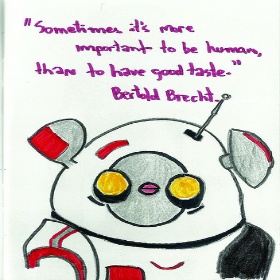 "Sometimes it's more
important to be human,
than to have good taste."
Bertold Brecht